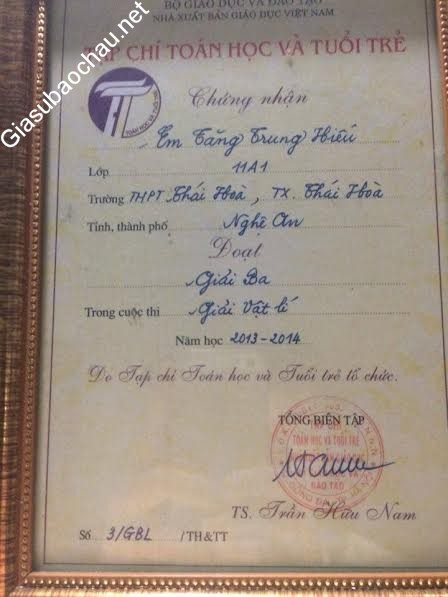 BỘ GIÁO DỤC VÀ ĐÀO TẠO
NHÀ XUẤT BẢN GIÁO DỤC VIỆT NAM
TẠP CHÍ TOÁN HỌC VÀ TUỔI TRẺ
Giasubaochau.net
TOÁN HỌC VÀ TUỔI TRẺ
Chứng nhận
Em Tăng Trung Hiếu
Lớp 11A1
Trường THPT Thái Hoà, TX. Thái Hoà
Tỉnh, thành phố Nghệ An
Đoạt
Giải Ba
Trong cuộc thi Giải Vật lí
Năm học 2013-2014
Do Tạp chí Toán học và Tuổi trẻ tổ chức.
TỔNG BIÊN TẬP
TẠP CHÍ
TOÁN HỌC VÀ TUỔI TRẺ
ĐÀO TẠO
TS. Trần Hữu Nam
Số 3/GBL /TH&TT